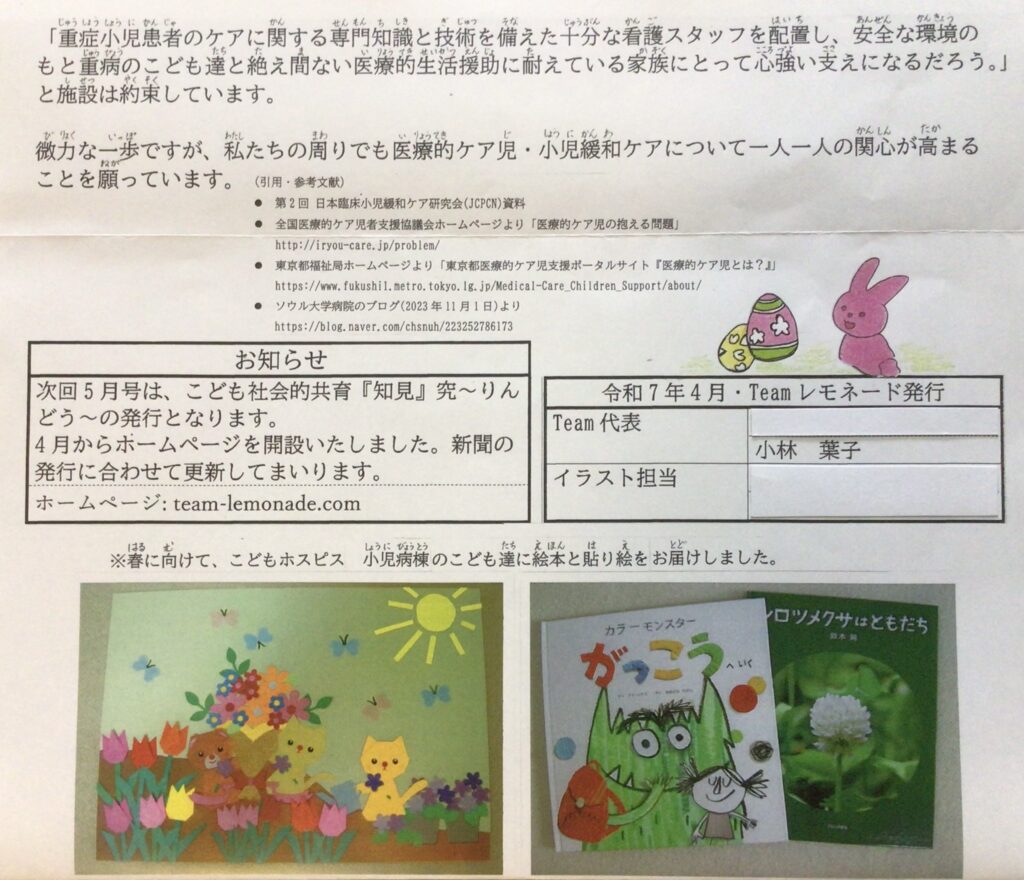 「重症小児患者のケアに関する専門知識と技術を備えた十分な看護スタッフを配置し、安全な環境の
もと重病のこども達と絶え間ない医療的生活援助に耐えている家族にとって心強い支えになるだろう。」
と施設は約束しています。
微力な一歩ですが、私たちの周りでも医療的ケア児・小児緩和ケアについて一人一人の関心が高まる
ことを願っています。 (引用・参考文献)
● 第2回 日本臨床小児緩和ケア研究会(JCPCN)資料
● 全国医療的ケア児者支援協議会ホームページより「医療的ケア児の抱える問題」
http://iryou-care.jp/problem/
● 東京都福祉局ホームページより「東京都医療的ケア児支援ポータルサイト『医療的ケア児とは？』」
https://www.fukushi1.metro.tokyo.lg.jp/Medical-Care_Children_Support/about/
● ソウル大学病院のブログ(2023年11月1日)より
https://blog.naver.com/chsnuh/223252786173
お知らせ
次回5月号は、こども社会的共育『知見』究～りん
どう～の発行となります。
4月からホームページを開設いたしました。新聞の
発行に合わせて更新してまいります。
ホームページ: team-lemonade.com
令和7年4月・Teamレモネード発行
Team代表
小林 葉子
イラスト担当
※春に向けて、こどもホスピス 小児病棟のこども達に絵本と貼り絵をお届けしました。
カラーモンスター
がっこう
へいく
シロツメクサはともだち
鈴木 純